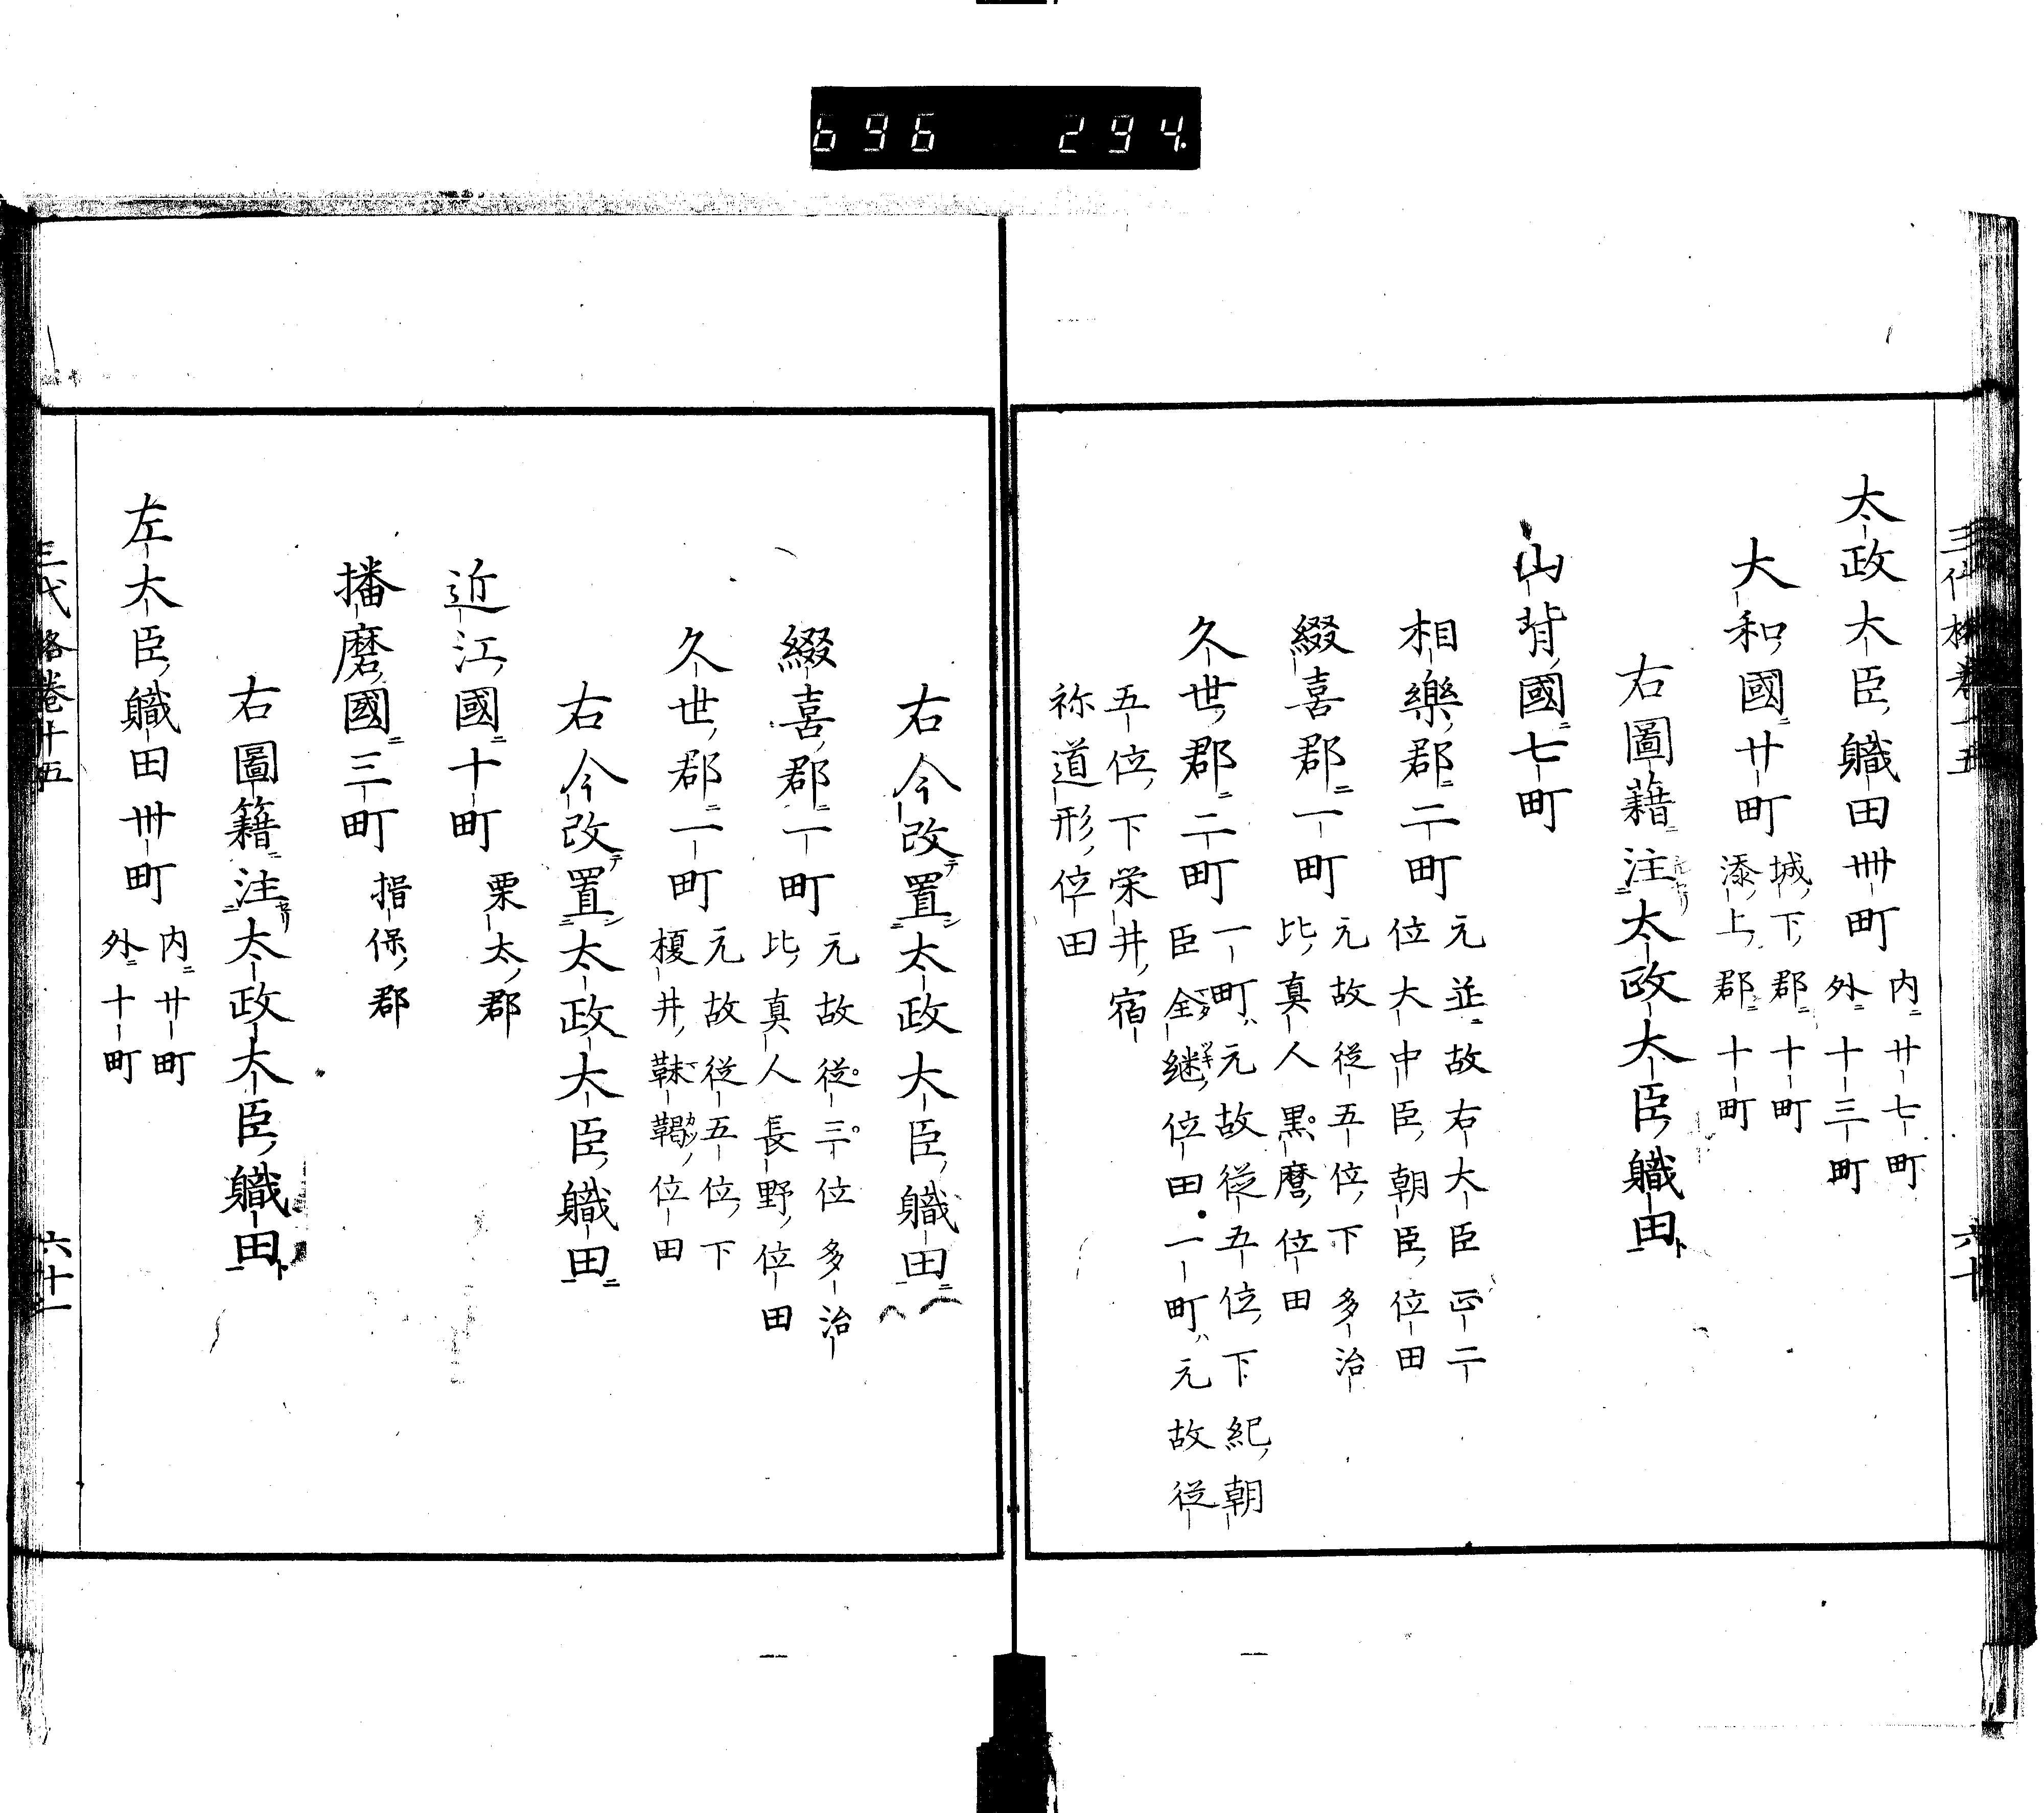 696 294
太政大臣職田卌町 内廿七町 外十三町
大和國廿町 城下郡十町 添上郡十町
右圖籍注太政大臣職田
山背國七町
相樂郡二町 元並故右大臣正二位大中臣朝臣位田
綴喜郡一町 元故從五位下多治比真人黒麿位田
久世郡二町 一町元故從五位下紀朝臣全継位田一町元故從
五位下栄井宿祢道形位田
六十
右今改置太政大臣職田
綴喜郡一町 元故從三位多治比真人長野位田
久世郡一町 元故從五位下榎井靺鞨位田
右今改置太政大臣職田
近江國十町 栗太郡
播磨國三町 揖保郡
右圖籍注太政大臣職田
左大臣職田卅町 内廿町 外十町
三代格卷十五
六十一